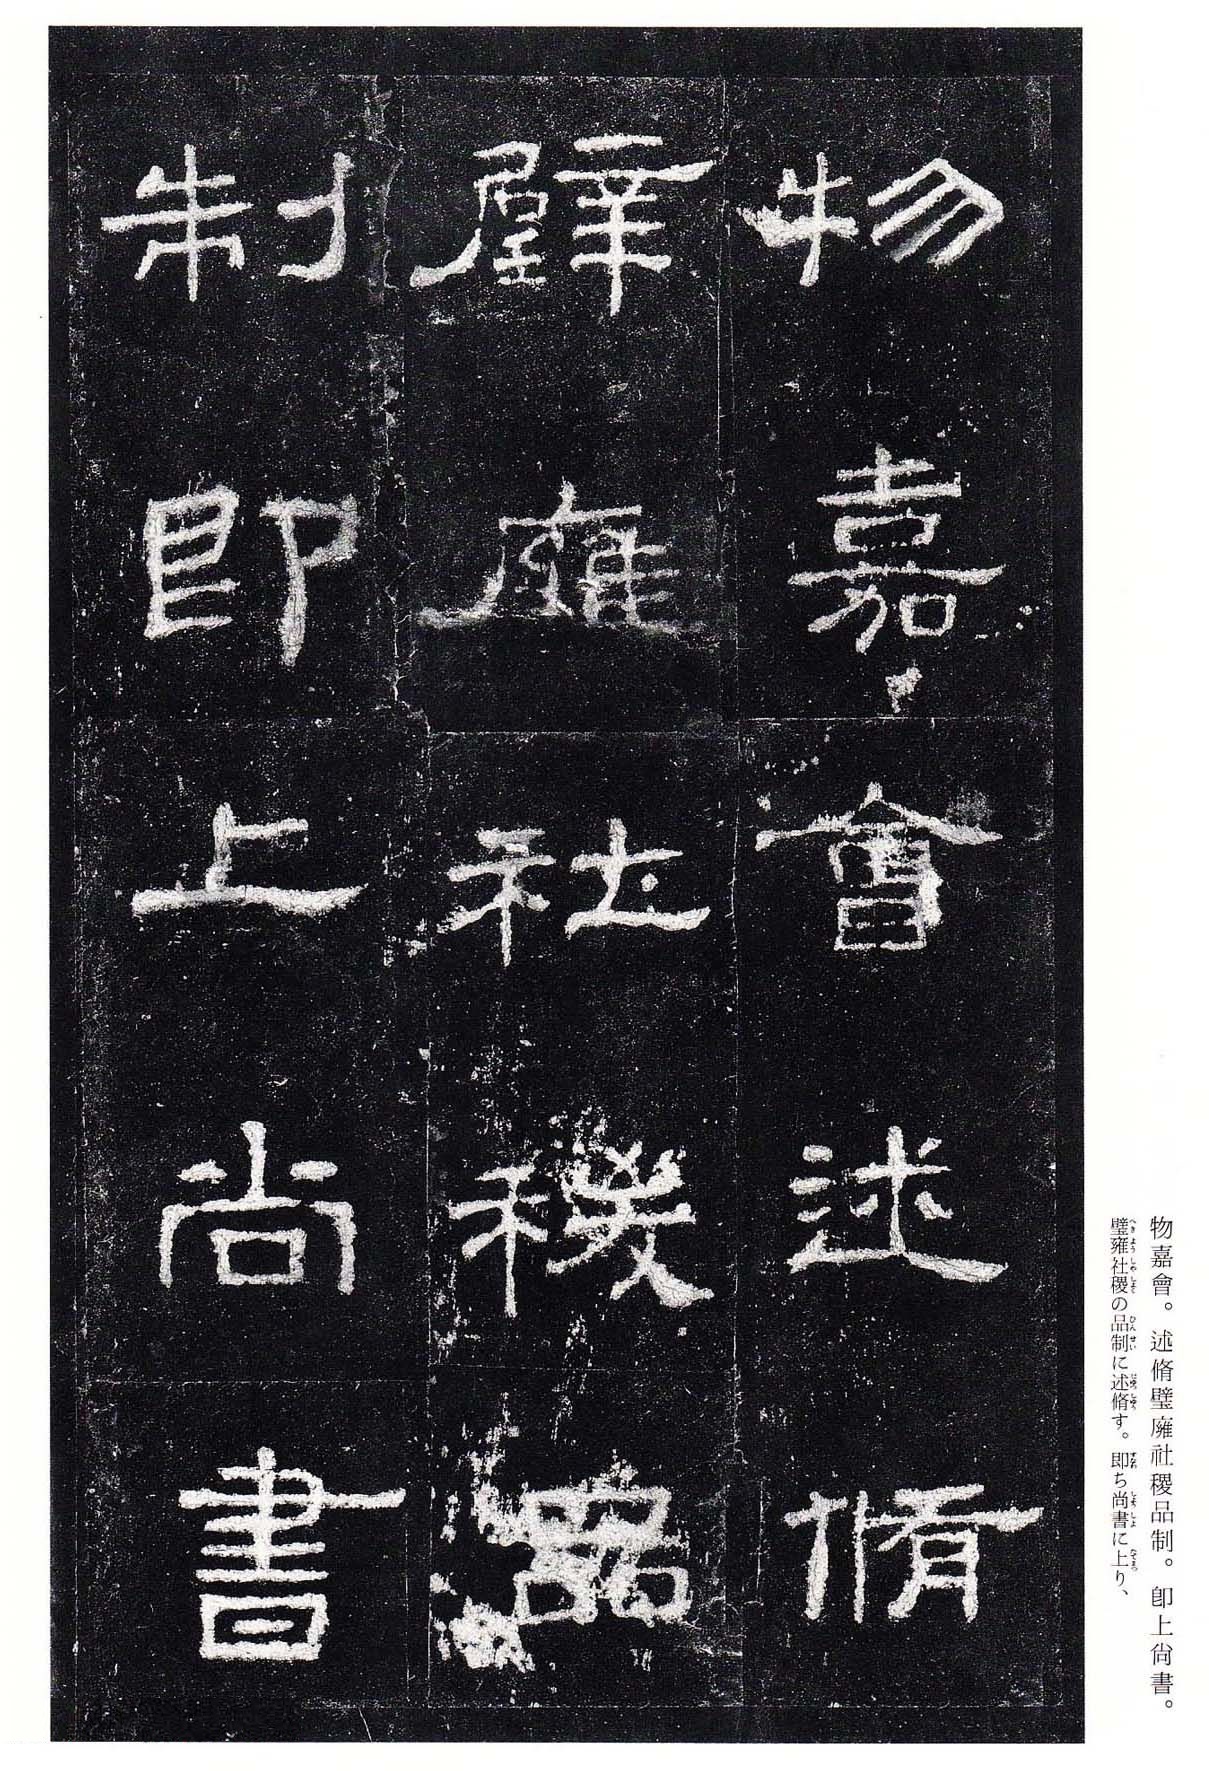 物嘉會述脩
璧廱社稷品
制即上尚書
物嘉會。述脩璧廱社稷品制。卽上尙書。
璧雍社稷の品制に述脩す。即ち尚書に上り、